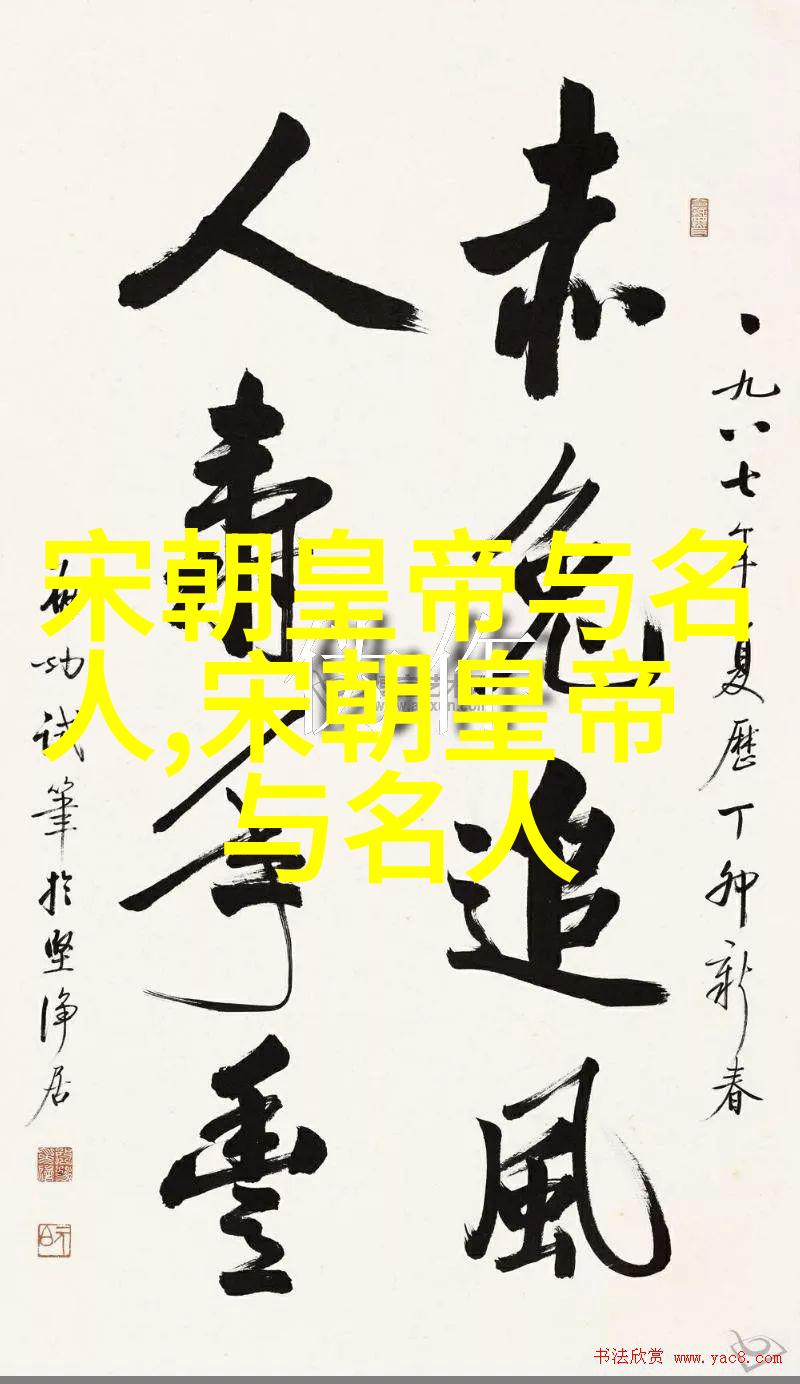 一九八七年夏歷丁卯新春
赤兔追風
人壽年豐
啟功試筆於堅淨居
宋朝皇帝与名
人,宋朝皇帝
与名人
书法欣赏 www.yac8.com